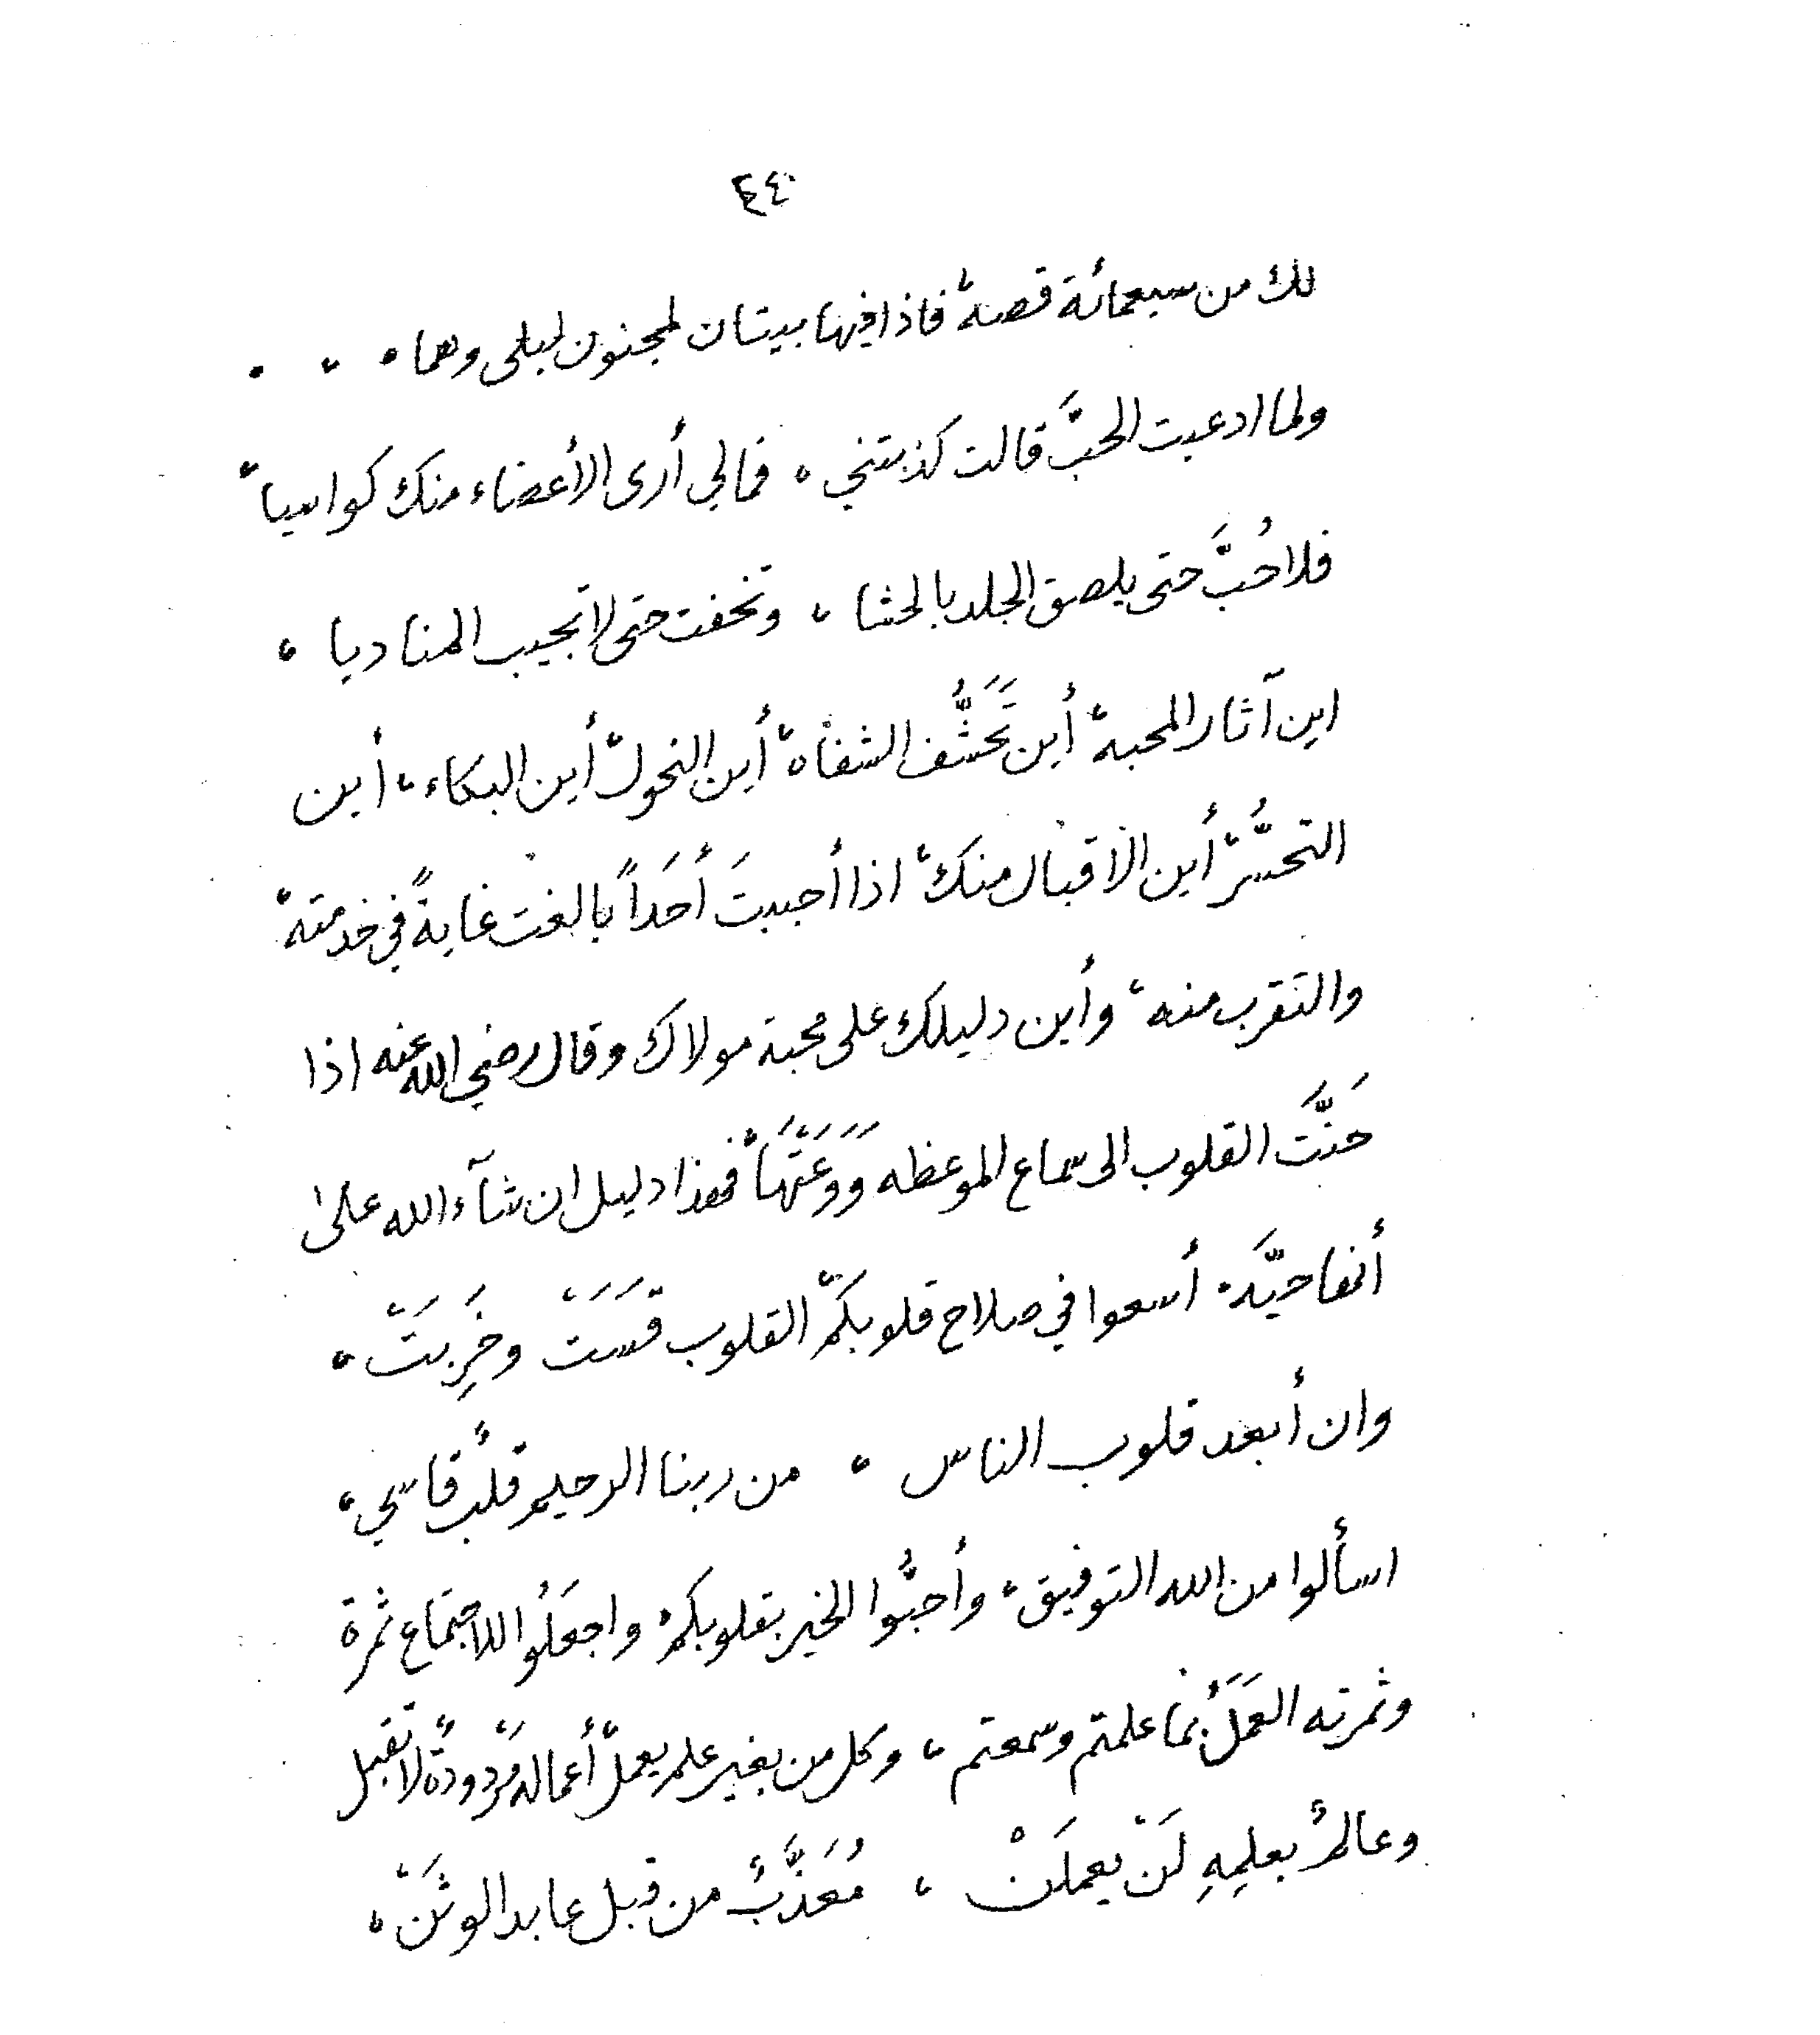 ٤٤
لك من سبعمائة قصة، فاذا فيها بيتان لمجنون ليلى وهما ، ، .
ولما ادعيت الحبَّ قالت كذبتني ، فمالي أرى الأعضاء منك كواسياً
فلا حُبَّ حتى يلصق الجلد بالحشا ، وتخفت حتى لا تجيب المناديا ،
اين آثار المحبة، أين تَحَشُّف الشفاه، أين النحول، أين البكاء، أين
التحسُّر، أين الاقبال منك، اذا أحببتَ أحَداً بالغت غايةً في خدمته،
والتقرب منه، وأين دليلك على محبة مولاك وقال رضي الله عنه اذا
حَنَّت القلوب الى سماع الموعظه وَوَعَتْهَا، فهذا دليل ان شآء الله على
أنها حيَّه، أسعوا في صلاح قلوبكم، القلوب قَسَتْ وخَرِبَتْ ،
وان أبعد قلوب الناس ، من ربنا الرحيم قلبٌ قاسي ،
اسألوا من الله التوفيق، وأحبُّوا الخير بقلوبكم، واجعَلُوا للاجتماع ثمرة
وثمرته العَمَلُ بما علمتم وسمعتم ، وكل من بغير علم يعمل، أعماله مَرْدودةٌ لا تقبل
وعالمٌ بعلمِهِ لَنْ يعملَنْ ، مُعَذَّبٌ من قبل عابد الوثَنْ ،